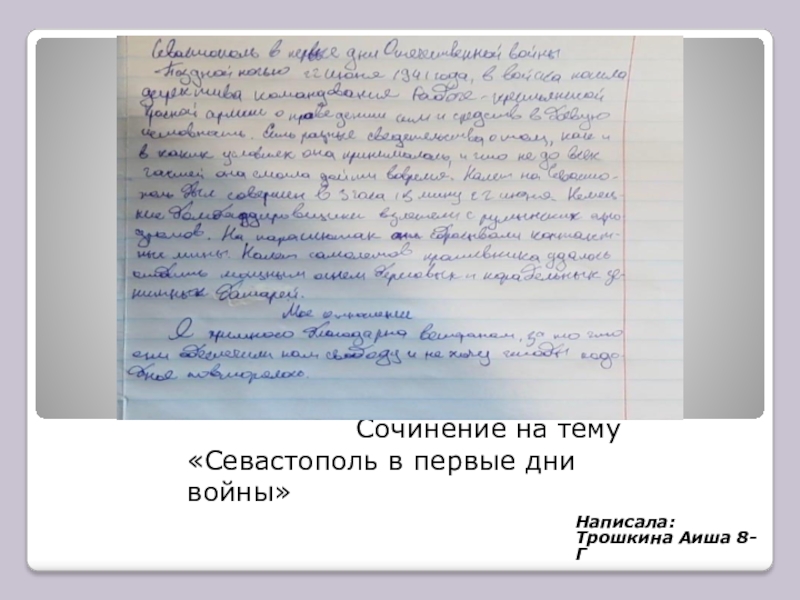 Севастополь в первые дни Отечественной войны
-Поздной ночью 22 июня 1941 года, в войска пошла
директива командования Рабоче-крестьянской
Красной армии о приведении сил и средств в боевую
готовность. Есть разные сведетельства о том, как и
в каких условиях она принималась, и что не до всех
частей она смогла дойти вовремя. Налет на Севасто-
поль был совершен в 3 часа 13 мину 22 июня. Немец-
кие бомбаддировщики взлетели с румынских аро-
дромов. На парашютах они сбрасывали контакт-
ные мины. Налет самолетов противника удалось
отбить мощным огнем береговых и корабельных зе-
нитных батарей.
Мое отношение
Я премного благодарна ветеранам, за то что
они обеспечили нам свободу и не хочу чтобы подо-
бное повторялось.
Сочинение на тему
«Севастополь в первые дни
войны»
Написала:
Трошкина Аиша 8-
Г